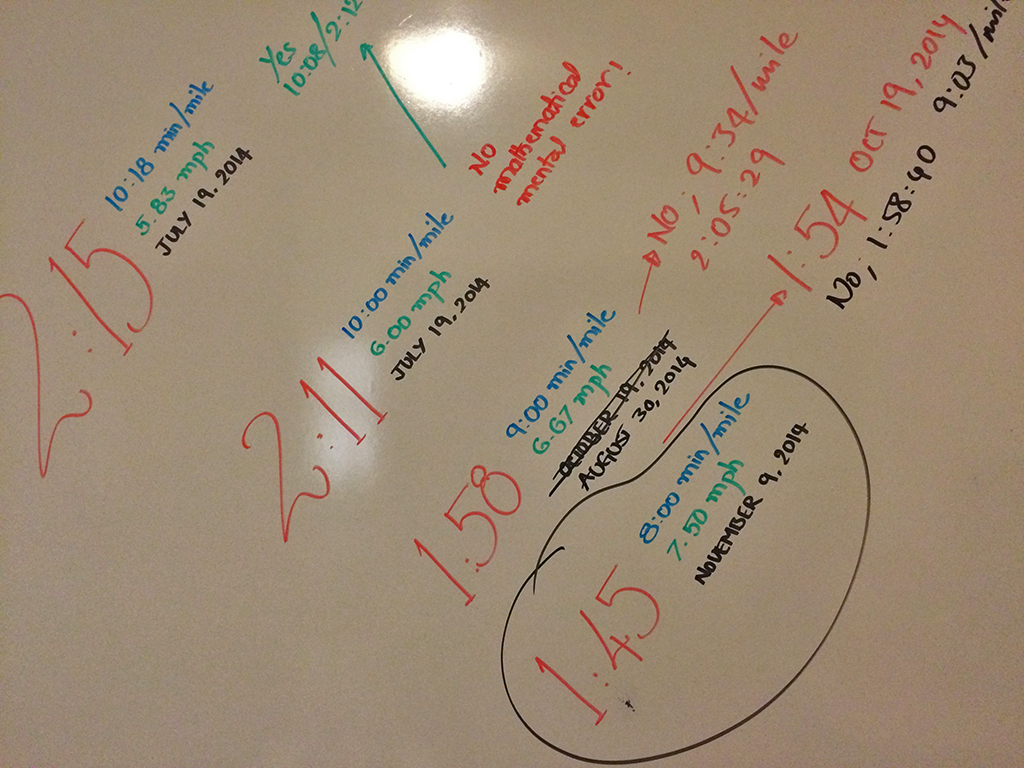 2:15
10:18 min/mile
5.83 mph
JULY 19, 2014
Yes
10:08/2:12
2:11
10:00 min/mile
6.00 mph
JULY 19, 2014
No
mathematical
mental error!
1:58
9:00 min/mile
6.67 mph
OCTOBER 19, 2014
AUGUST 30, 2014
No; 9:34/mile
2:05:29
1:45
8:00 min/mile
7.50 mph
NOVEMBER 9, 2014
1:54 OCT 19, 2014
No, 1:58:40 9:03/mile